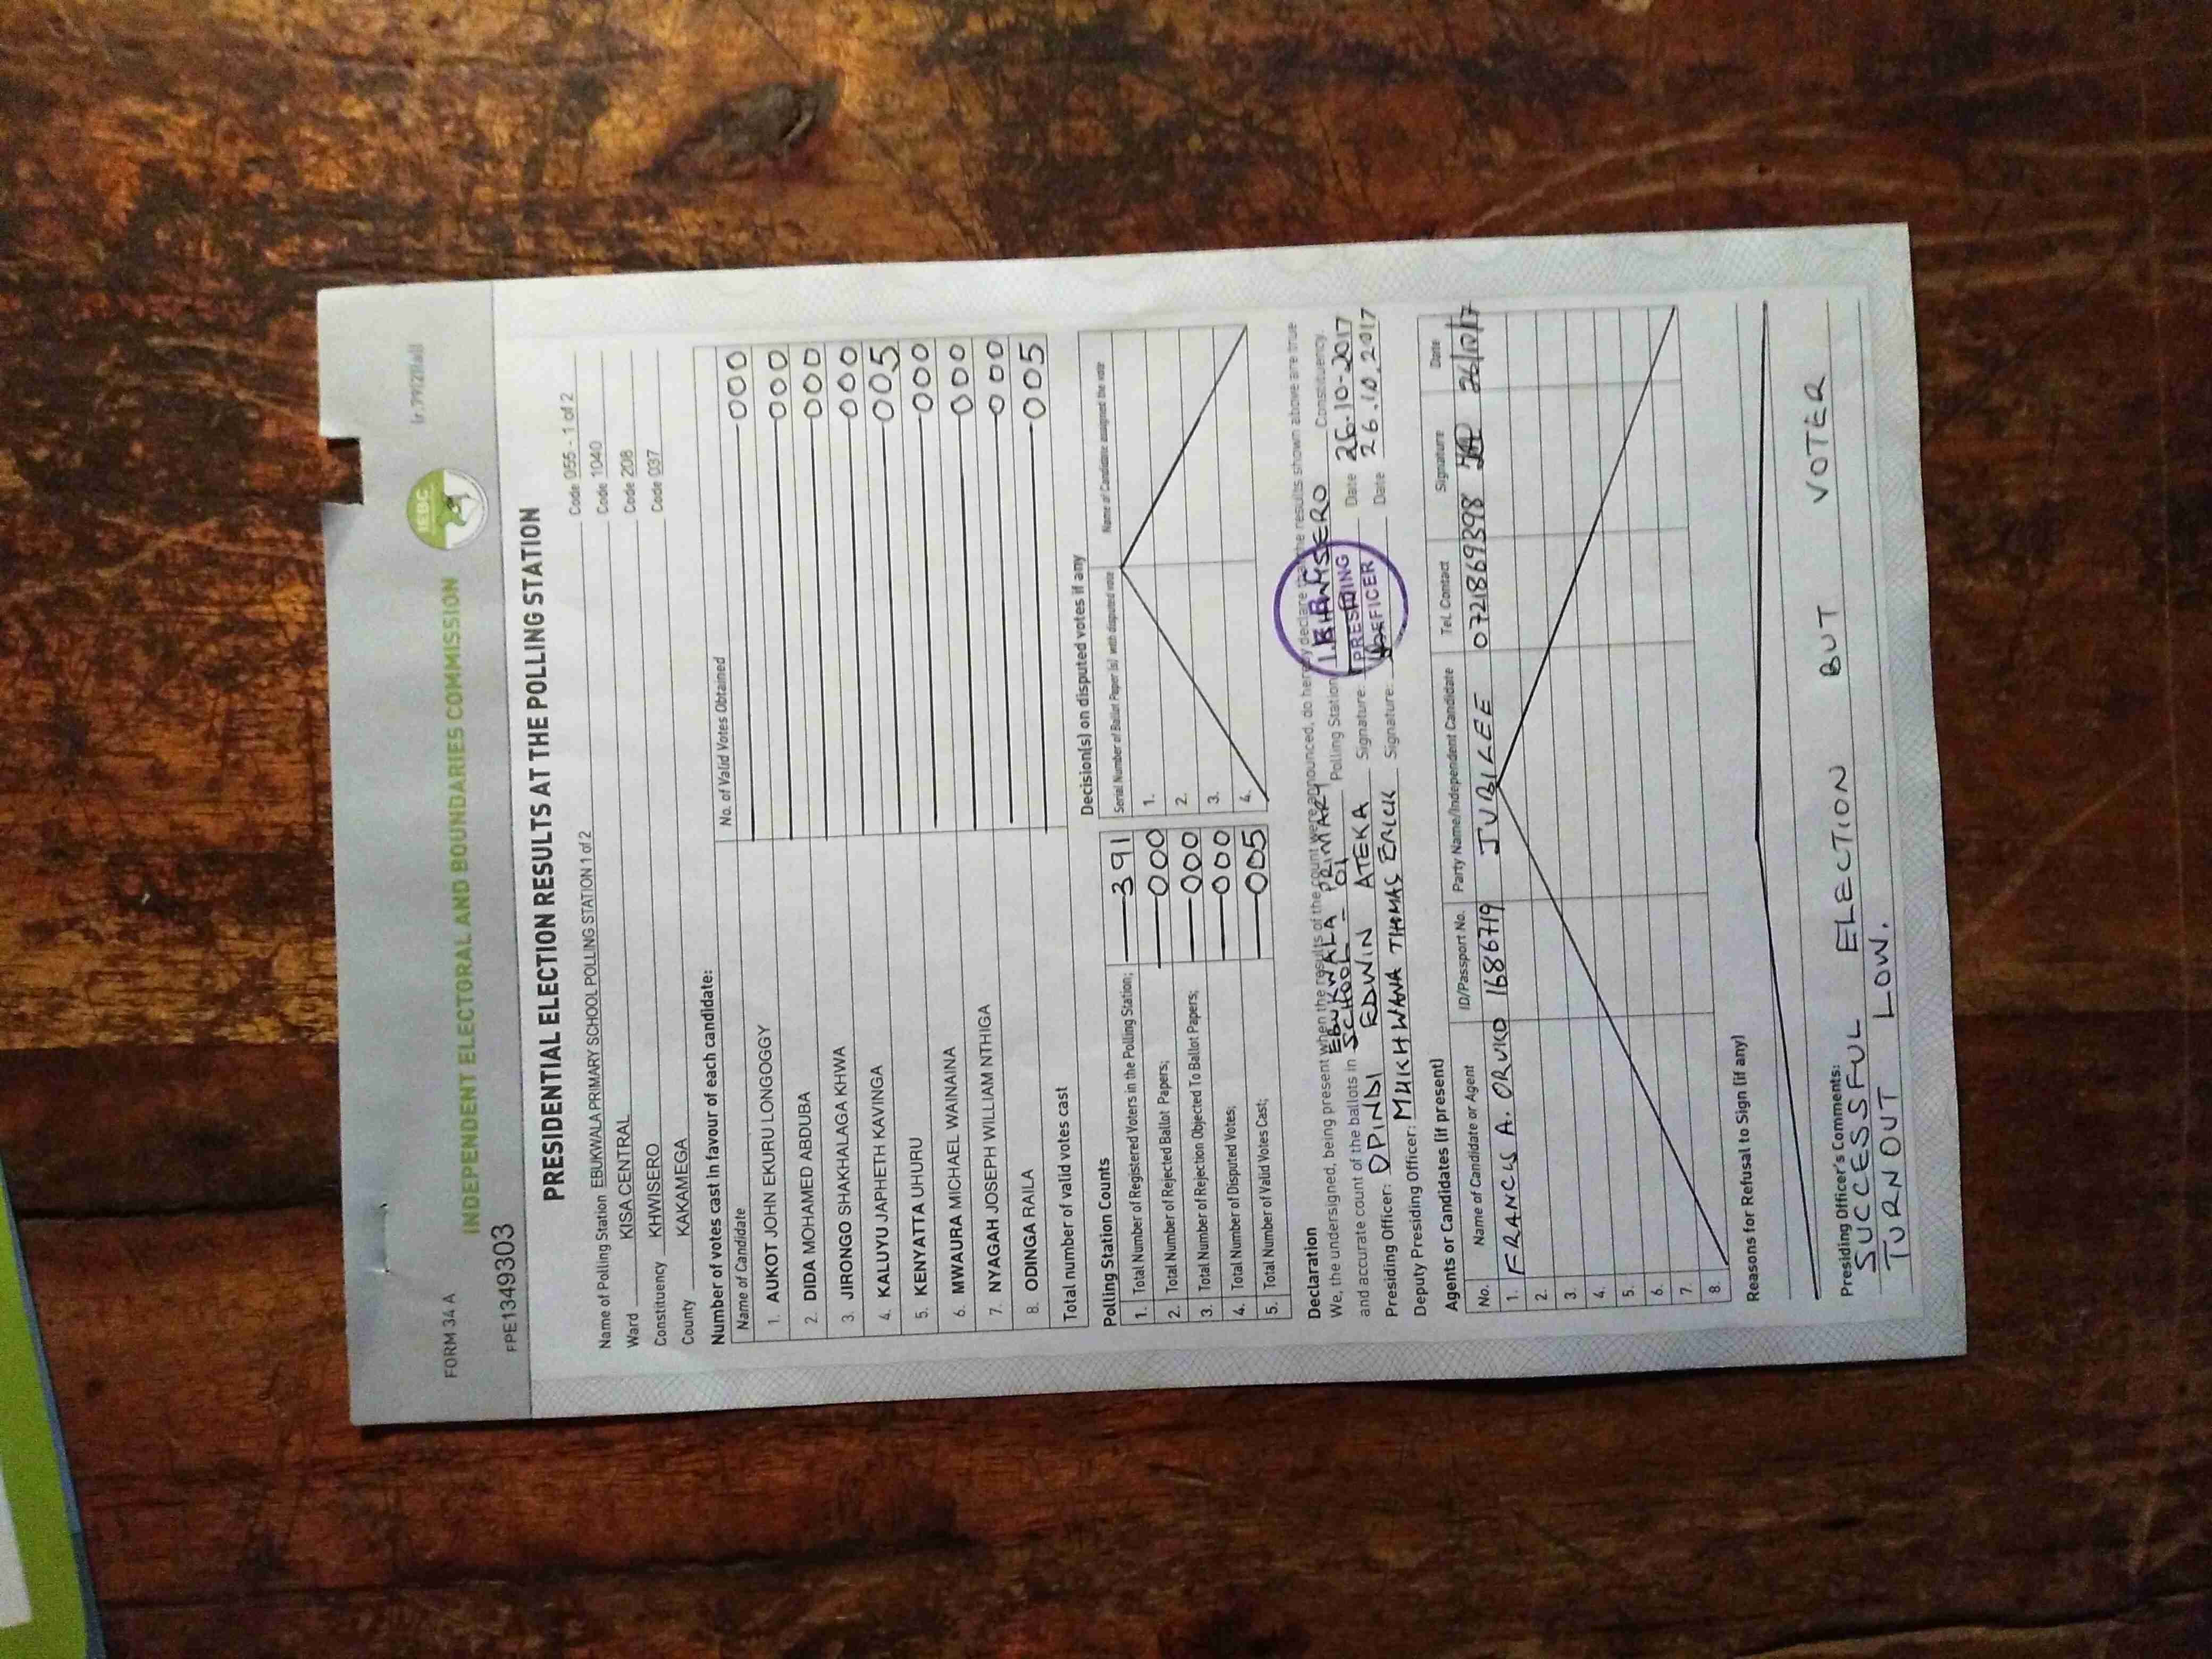 FORM 34 A
INDEPENDENT ELECTORAL AND BOUNDARIES COMMISSION
IEBC
FPE1349303
PRESIDENTIAL ELECTION RESULTS AT THE POLLING STATION
Name of Polling Station EBUKWALA PRIMARY SCHOOL POLLING STATION 1 of 2 Code 055 - 1 of 2
Ward KISA CENTRAL Code 1040
Constituency KHWISERO Code 208
County KAKAMEGA Code 037
Number of votes cast in favour of each candidate:
Name of Candidate No. of Valid Votes Obtained
1. AUKOT JOHN EKURU LONGOGGY 000
2. DIDA MOHAMED ABDUBA 000
3. JIRONGO SHAKHALAGA KHWA 000
4. KALUYU JAPHETH KAVINGA 000
5. KENYATTA UHURU 005
6. MWAURA MICHAEL WAINAINA 000
7. NYAGAH JOSEPH WILLIAM NTHIGA 000
8. ODINGA RAILA 000
Total number of valid votes cast 005
Polling Station Counts
1. Total Number of Registered Voters in the Polling Station; 391
2. Total Number of Rejected Ballot Papers; 000
3. Total Number of Rejection Objected To Ballot Papers; 000
4. Total Number of Disputed Votes; 000
5. Total Number of Valid Votes Cast; 005
Decision(s) on disputed votes if any
Serial Number of Ballot Paper (s) with disputed vote Name of Candidate assigned the vote
1.
2.
3.
4.
Declaration
We, the undersigned, being present when the results of the count were announced, do hereby declare that the results shown above are true
and accurate count of the ballots in EBUKWALA PRIMARY SCHOOL 01 Polling Station KHWISERO Constituency.
Presiding Officer: OPINDI EDWIN ATEKA Signature: Date 26-10-2017
Deputy Presiding Officer: MUKHWANA THOMAS ERICK Signature: Date 26.10.2017
PRESIDING
OFFICER
Agents or Candidates (if present)
No. Name of Candidate or Agent ID/Passport No. Party Name/Independent Candidate Tel. Contact Signature Date
1. FRANCIS A. ORUKO 1686719 JUBILEE 0721869398 26/10/17
2.
3.
4.
5.
6.
7.
8.
Reasons for Refusal to Sign (if any)
Presiding Officer's Comments:
SUCCESSFUL ELECTION BUT VOTER
TURNOUT LOW.